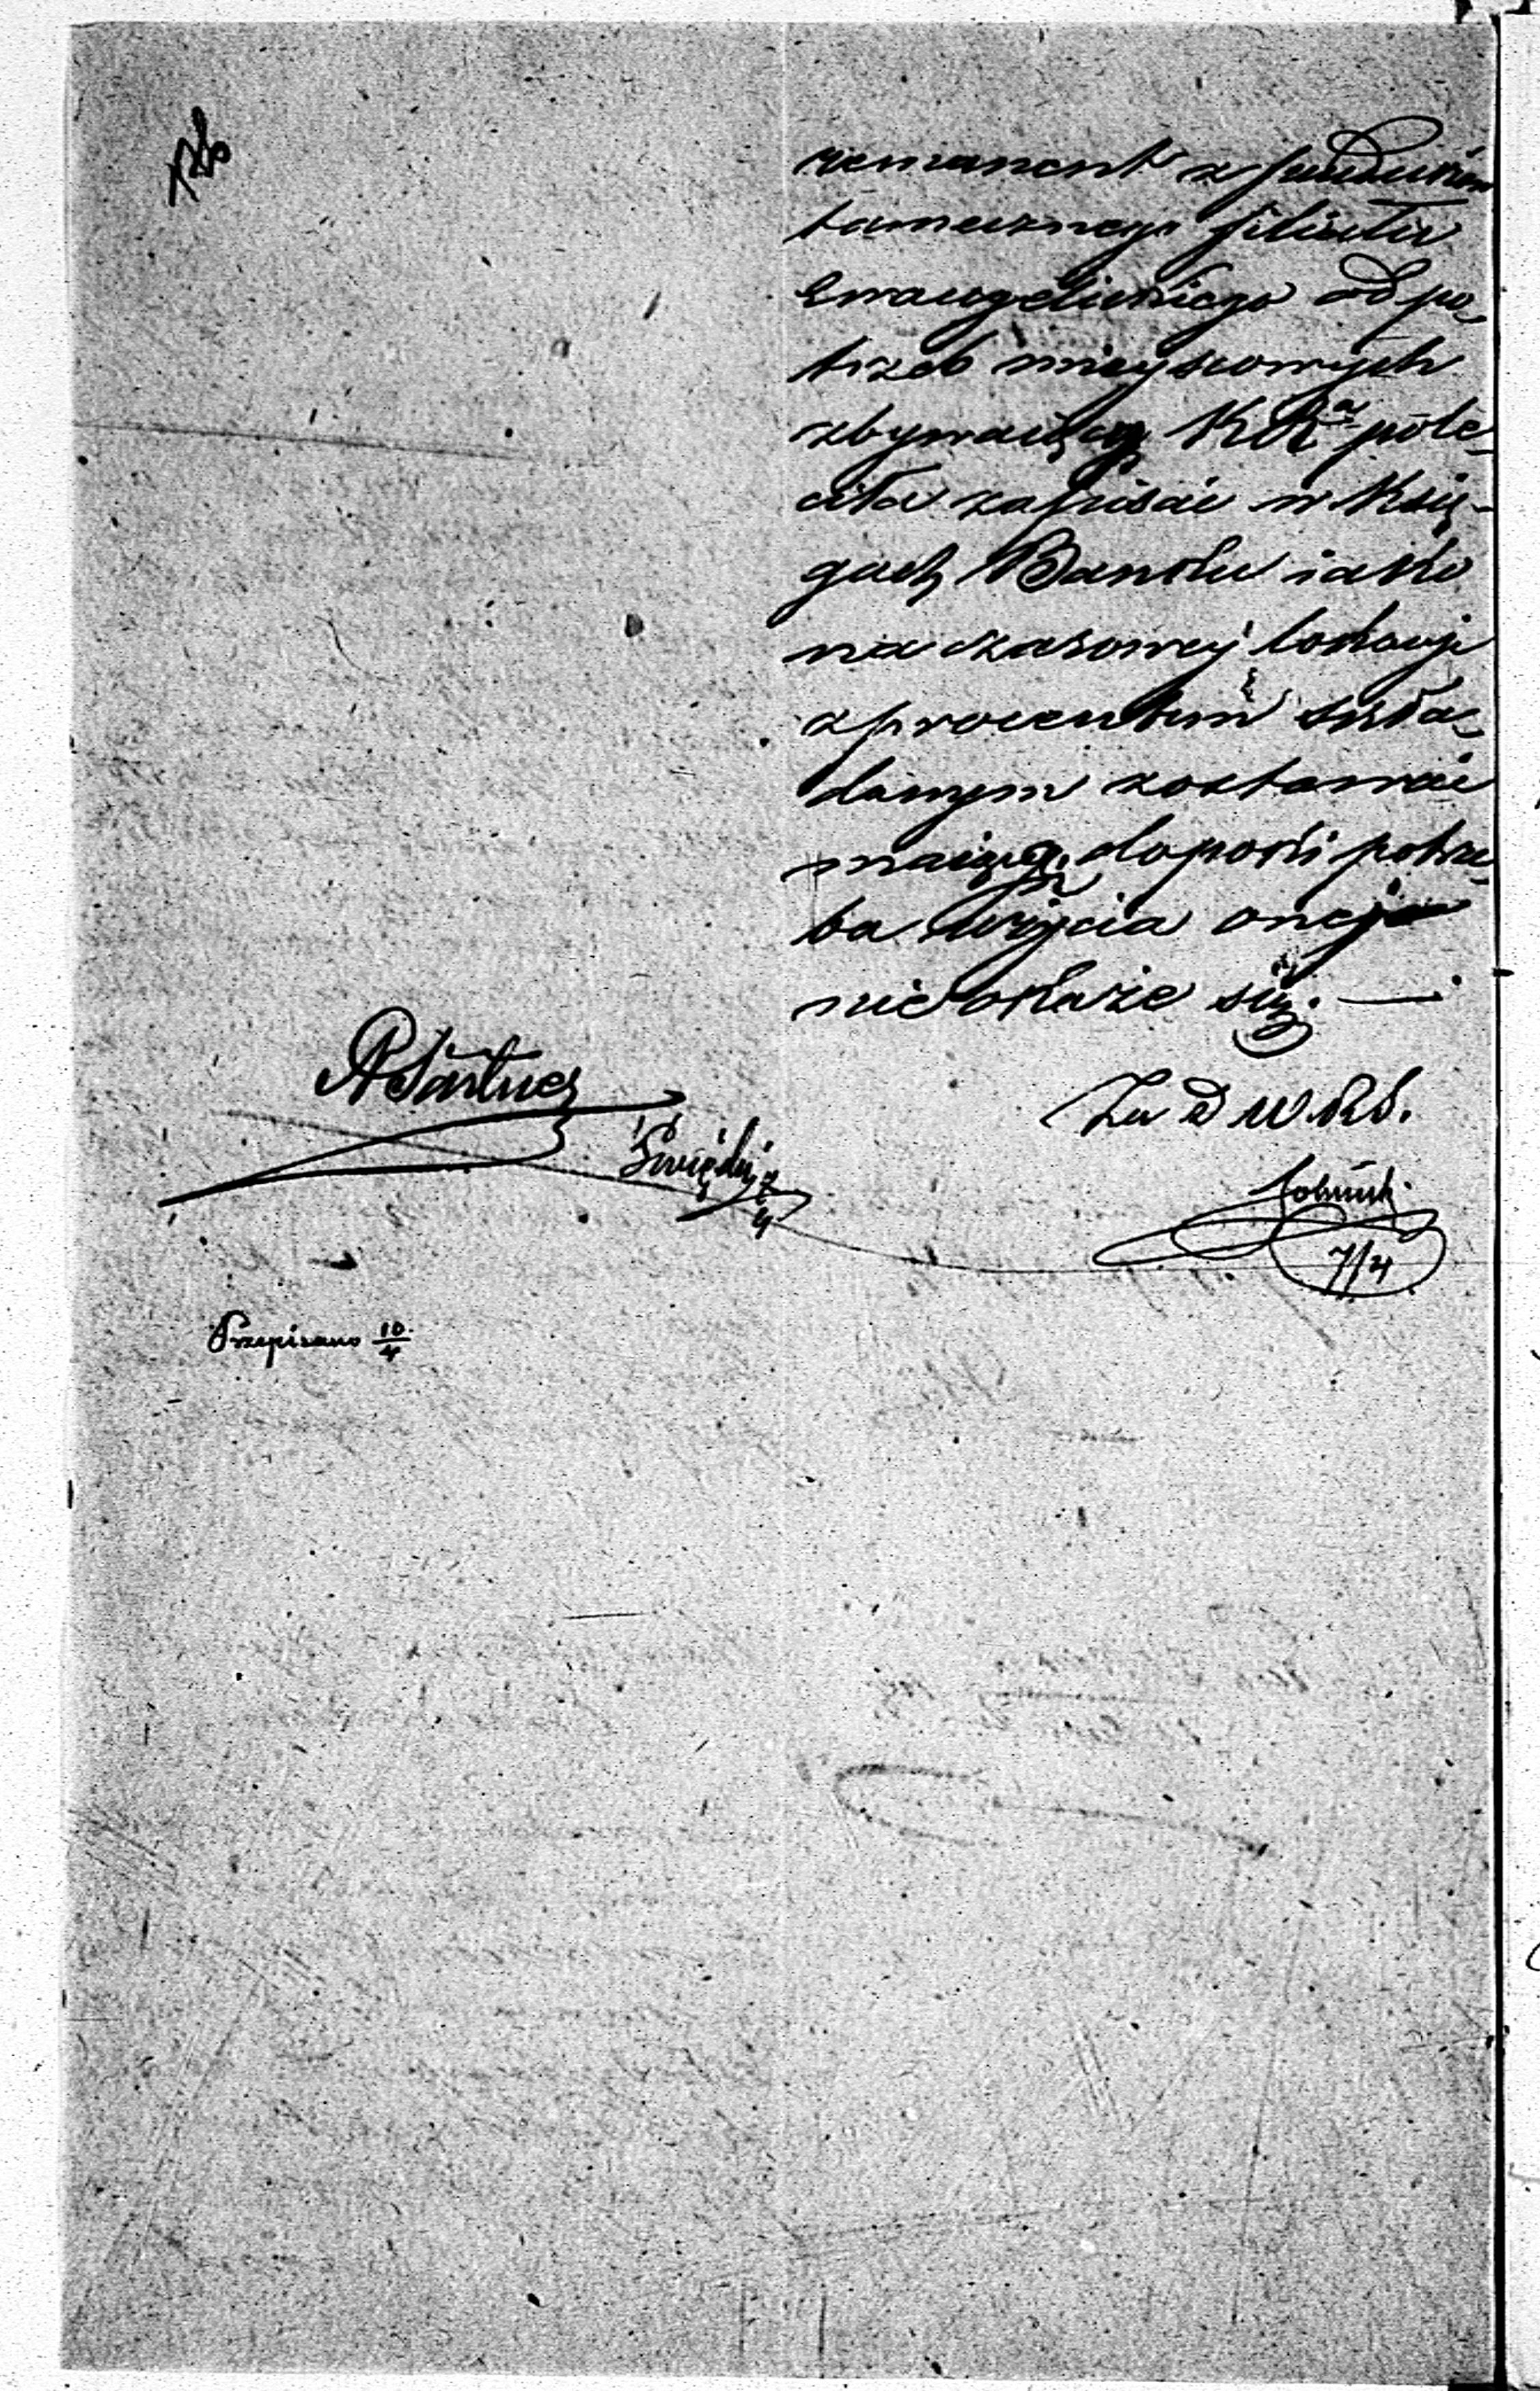 remanent z funduszów
tamecznego filiału
Ewangelickiego od po-
trzeb mieyscowych
zbywaiący KRa pole-
ciła zapisać w Księ-
gach Banku iako
na czasowey lokacyi
z procentem skła-
danym zostawać
maiącą, dopóki potrze-
ba użycia oney
nie okaże się. —
Za D W RS.
7/4
Przepisano 10/4